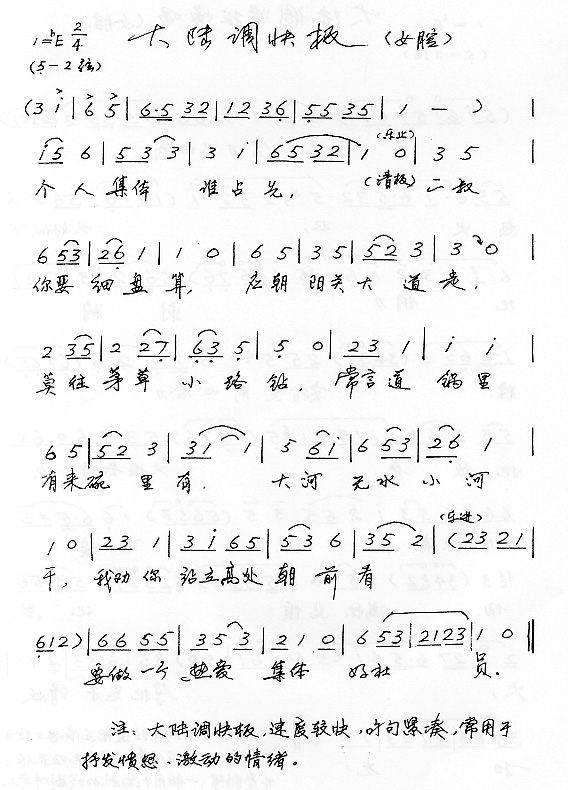 1=ᵇE 2/4 大陆调快板 (女腔)
(5-2弦)
(3 i | 6 5 | 6·5 32 | 12 36 | 55 35 | 1 - ) |
i5 6 | 53 3 | 3 i | 6532 | 1 0 | 3 5 |
(乐止)
个人集体 谁占先, (清板) 二叔
6 53 | 26 1 | 1 0 | 6 5 | 3 5 | 52 3 | 3 0 |
你要细盘算, 应朝阳关大道走,
2 35 | 2 27 | 63 5 | 5 0 | 23 1 | i i |
莫往茅草小路钻, 常言道 锅里
6 5 | 52 3 | 31 1 | 5 6i | 6 53 | 26 1 |
有来碗里有. 大河无水小河
(乐进)
1 0 | 23 1 | 3i 65 | 53 6 | 35 2 | (23 21 |
干, 我劝你站立高处朝前看
612) | 66 55 | 35 3 | 21 0 | 6 53 | 2123 | 1 0 ‖
要做一个热爱集体好社员.
注: 大陆调快板,速度较快,吟句紧凑,常用于
抒发愤怒、激动的情绪。